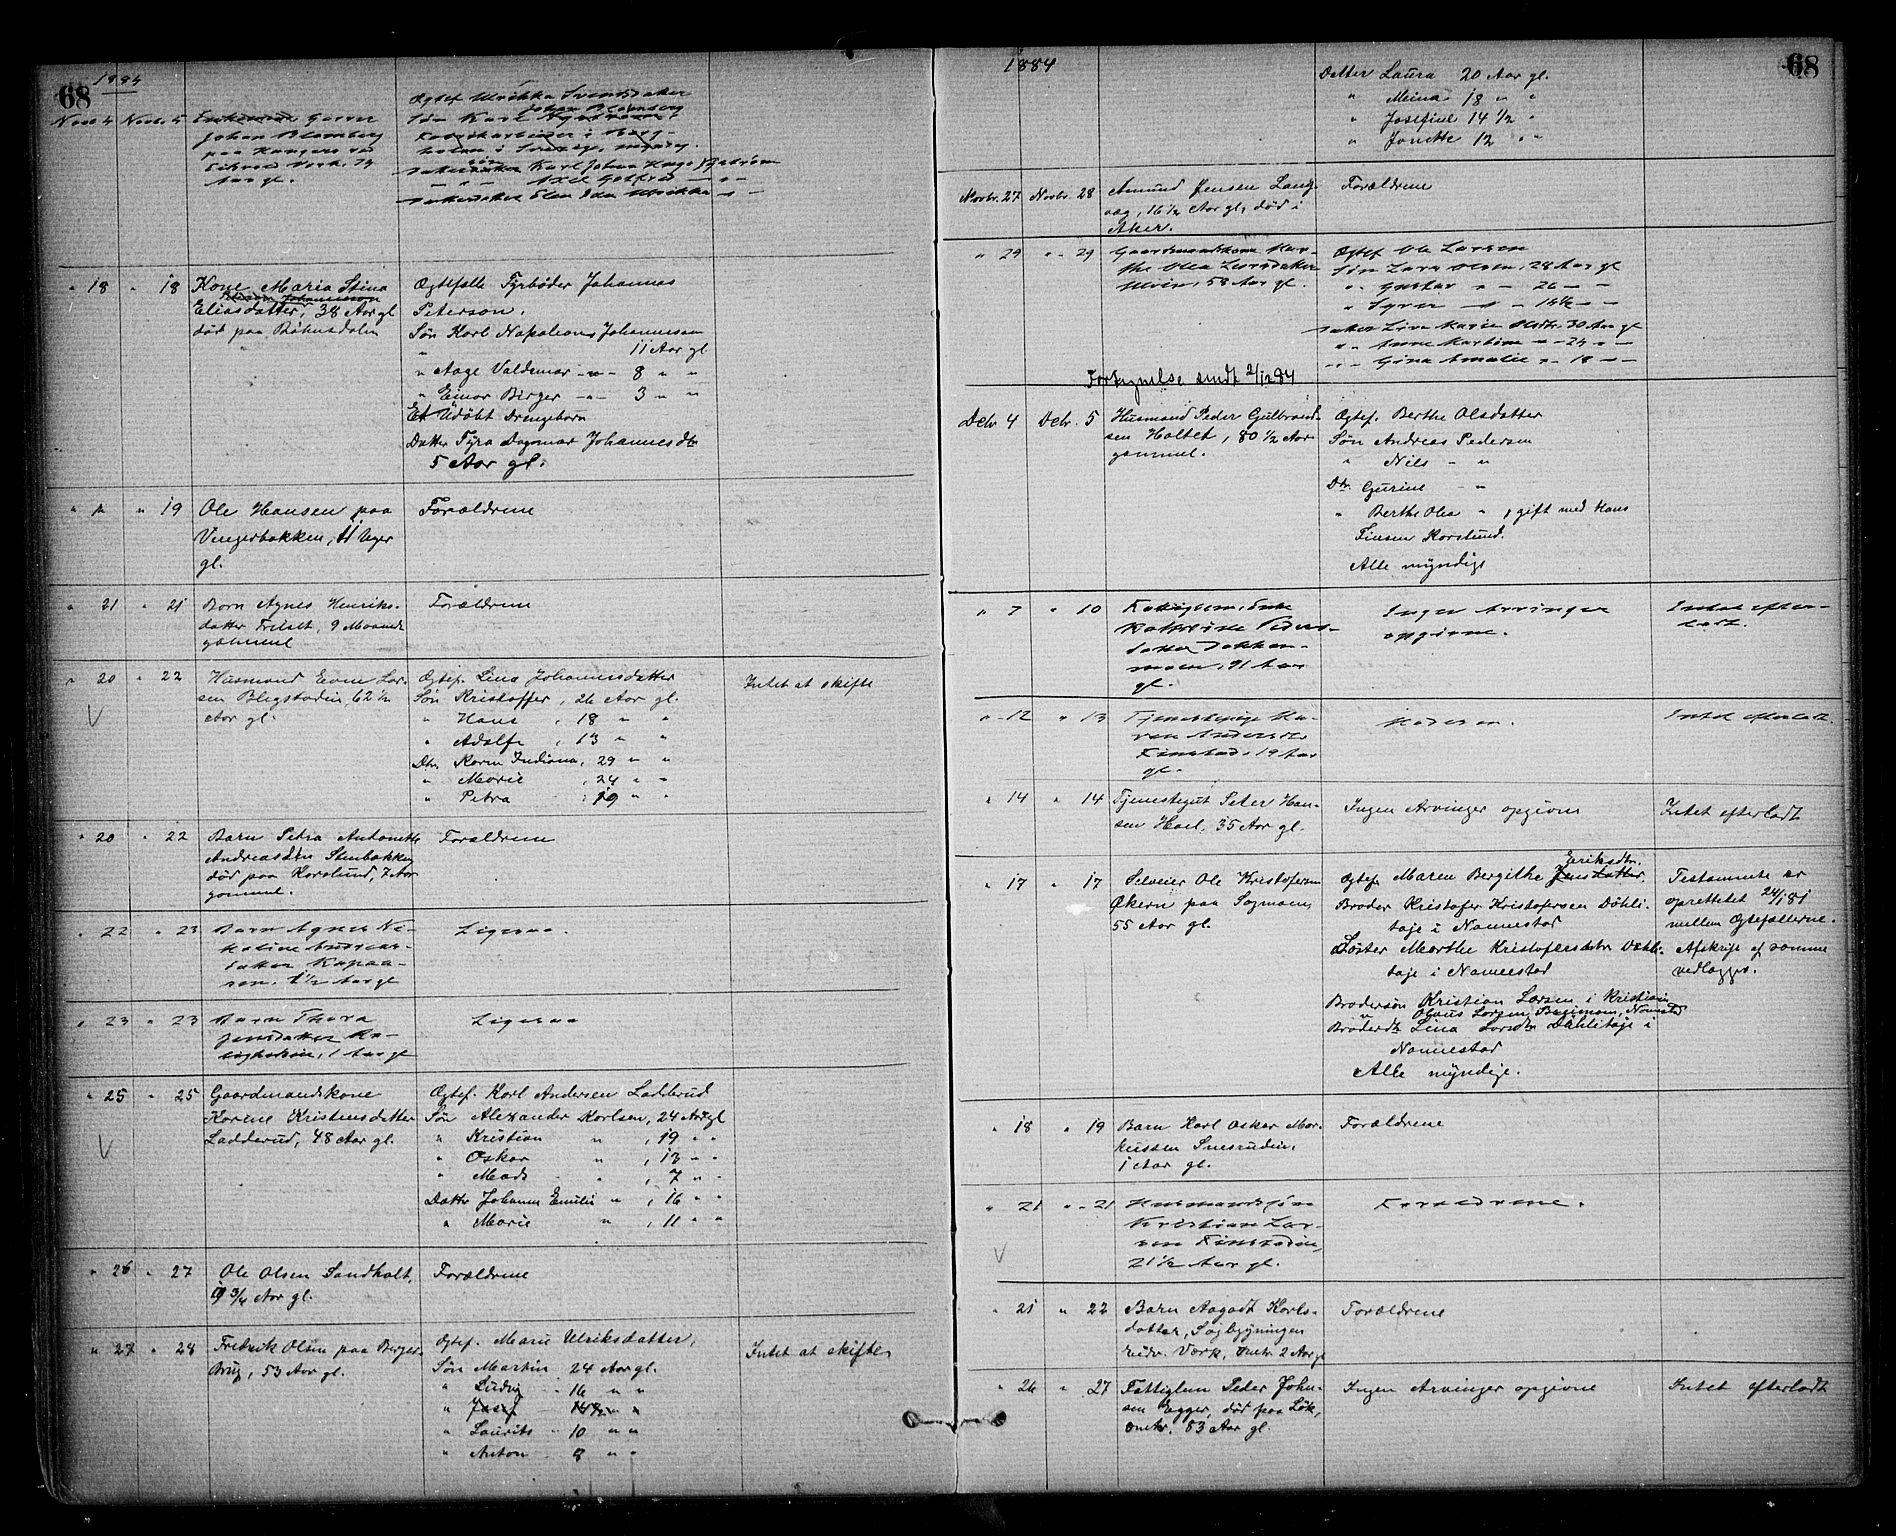 68
1884
Novb. 4 Novb. 5 Garver
Johan Blomberg
paa
Eidsvold Værk, 74
Aar gl.
Ægtef Ulrikka Svendsdatter
Johan Blomberg
Søn Karl
Fabrikarbeider i Borg-
i Sverige, myndig.
Karl Johan Hugo
" " Axel Gotfred
Elen Ida Ulrikka
" 18 " 18 Kone Maria Stina
Eliasdatter, 38 Aar gl
død paa Bøhnsdalen
Ægtefælle Fyrbøder Johannes
Peterson.
Søn Karl Napoleons Johannesen
11 Aar gl
" Aage Valdemar " 8 " "
" Einar Birger " 3 " "
Et Udøbt Drengebarn
Datter Tyra Dagmar Johannesdtr
5 Aar gl.
" " 19 Ole Hansen paa
Vengerbakken, 11 Uger
gl.
Forældrene
" 21 " 21 Barn Agnes Henriks-
datter Frilset, 9 Maaneder
gammel
Forældrene
" 20 " 22 Husmand Even Lar-
sen Blegstadeie, 62 ½
Aar gl.
Ægtef. Lina Johannesdatter
Søn Kristoffer, 26 Aar gl.
" Hans , 18 " "
" Adolf , 13 " "
Dtr. Karen Indiana, 29 " "
" Marie , 24 " "
" Petra , 19 " "
Intet at skifte
" 20 " 22 Barn Petra Antonette
Andreasdtr Stenbakken
død paa Korslund, 7 Aar
gammel.
Forældrene
" 22 " 23 Barn Agnes Ni-
koline Andreas-
datter
1½ Aar gl
Ligesaa.
" 23 " 23 Barn Thora
Jensdatter
1 Aar gl
Ligesaa
" 25 " 25 Gaardmandskone
Karine Kristensdatter
Ladderud, 48 Aar gl.
Ægtef. Karl Andersen Ladderud
Søn Alexander Karlsen, 24 Aar gl
" Kristian " , 19 " "
" Oskar " , 13 " "
" Mads " , 7 " "
Datter Johanne Emilie " , 16 " "
" Marie " , 11 " "
" 26 " 27 Ole Olsen Sandholt,
19 ¾ Aar gl.
Forældrene
" 27 " 28 Fredrik Olsen paa Berger
Brug, 53 Aar gl.
Ægtef. Marie Ulriksdatter,
Søn Martin 24 Aar gl.
" Ludvig " 16 " "
" Josef 14½ " "
" Laurits " 10 " "
" Anton " 8 " "
Intet at skifte
1884
68
Datter Laura 20 Aar gl.
" Meina 18 " "
" Josefine 14 ½ "
" Jonette 12 " "
Novbr. 27 Novbr. 28 Amund Jensen Lang-
aag, 16 ½ Aar gl, død i
Aker.
Forældrene
" 29 " 29 Gaardmandskone Mar-
the Olea Larsdatter
58 Aar gl.
Ægtef Ole Larsen
Søn Lars Olsen, 28 Aar gl
" Gustav " 26 "
" Syver " 16½ "
Datter Lina Marie Olsdtr. 30 Aar gl
" Anne Martine " 24 "
" Gina Amalie " 18 "
Forkyndelse sendt 2/12 84
Debr 4 Debr. 5 Husmand Peder Gulbrand-
sen Holtet, 80 ½ Aar
gammel.
Ægtef. Berthe Olsdatter
Søn Andreas Pedersen
" Nils " "
Dtr. Gurine " "
" Berthe Olea " , gift med Hans
Finsen Korslund.
Alle myndige
" 7 " 10 Fattiglem, Enke
Kathrine Peders-
datter Dokken-
moen, 91 Aar
gl.
Ingen Arvinger
opgivne.
Intet efter-
ladt.
" 12 " 13 Tjenestepige Ka-
ren Andersdtr
Finstad, 19 Aar
gl.
Moderen.
Intet efterladt.
" 14 " 14 Tjenestegut Peter Han-
sen Hoel, 35 Aar gl.
Ingen Arvinger opgivne
Intet efterladt
" 17 " 17 Selveier Ole Kristofersen
Økern paa Sagmoen,
55 Aar gl.
Eriksdtr.
Ægtef. Maren Bergithe Jensdatter,
Broder Kristofer Kristofersen Dæhli-
taje i Nannestad
Søster Marthe Kristofersdatter Dæhli-
taje i Nannestad
Brodersøn Kristian Larsen i Kristiania
" Olaus Larsen Nannestad
Broderdtr Lina Larsdtr Dæhlitaje i
Nannestad
Alle myndige.
Testamente er
oprettet 24/1 81
mellem Ægtefællerne.
Afskrift af samme
vedlægges.
" 18 " 19 Barn Karl Oskar Mar-
kussen Snesrudeie,
1 Aar gl.
Forældrene
" 21 " 21 Husmandssøn
Kristian Lar-
sen Finstadeie,
21½ Aar gl.
Forældrene.
" 21 " 22 Barn Aagodt Karls-
datter, Sagbygningen
Eidsv. Værk, omtr. 2 Aar gl
Forældrene
" 26 " 27 Fattiglem Peder John-
sen Egger, død paa Løk,
omtr. 83 Aar gl.
Ingen Arvinger opgivne
Intet efterladt